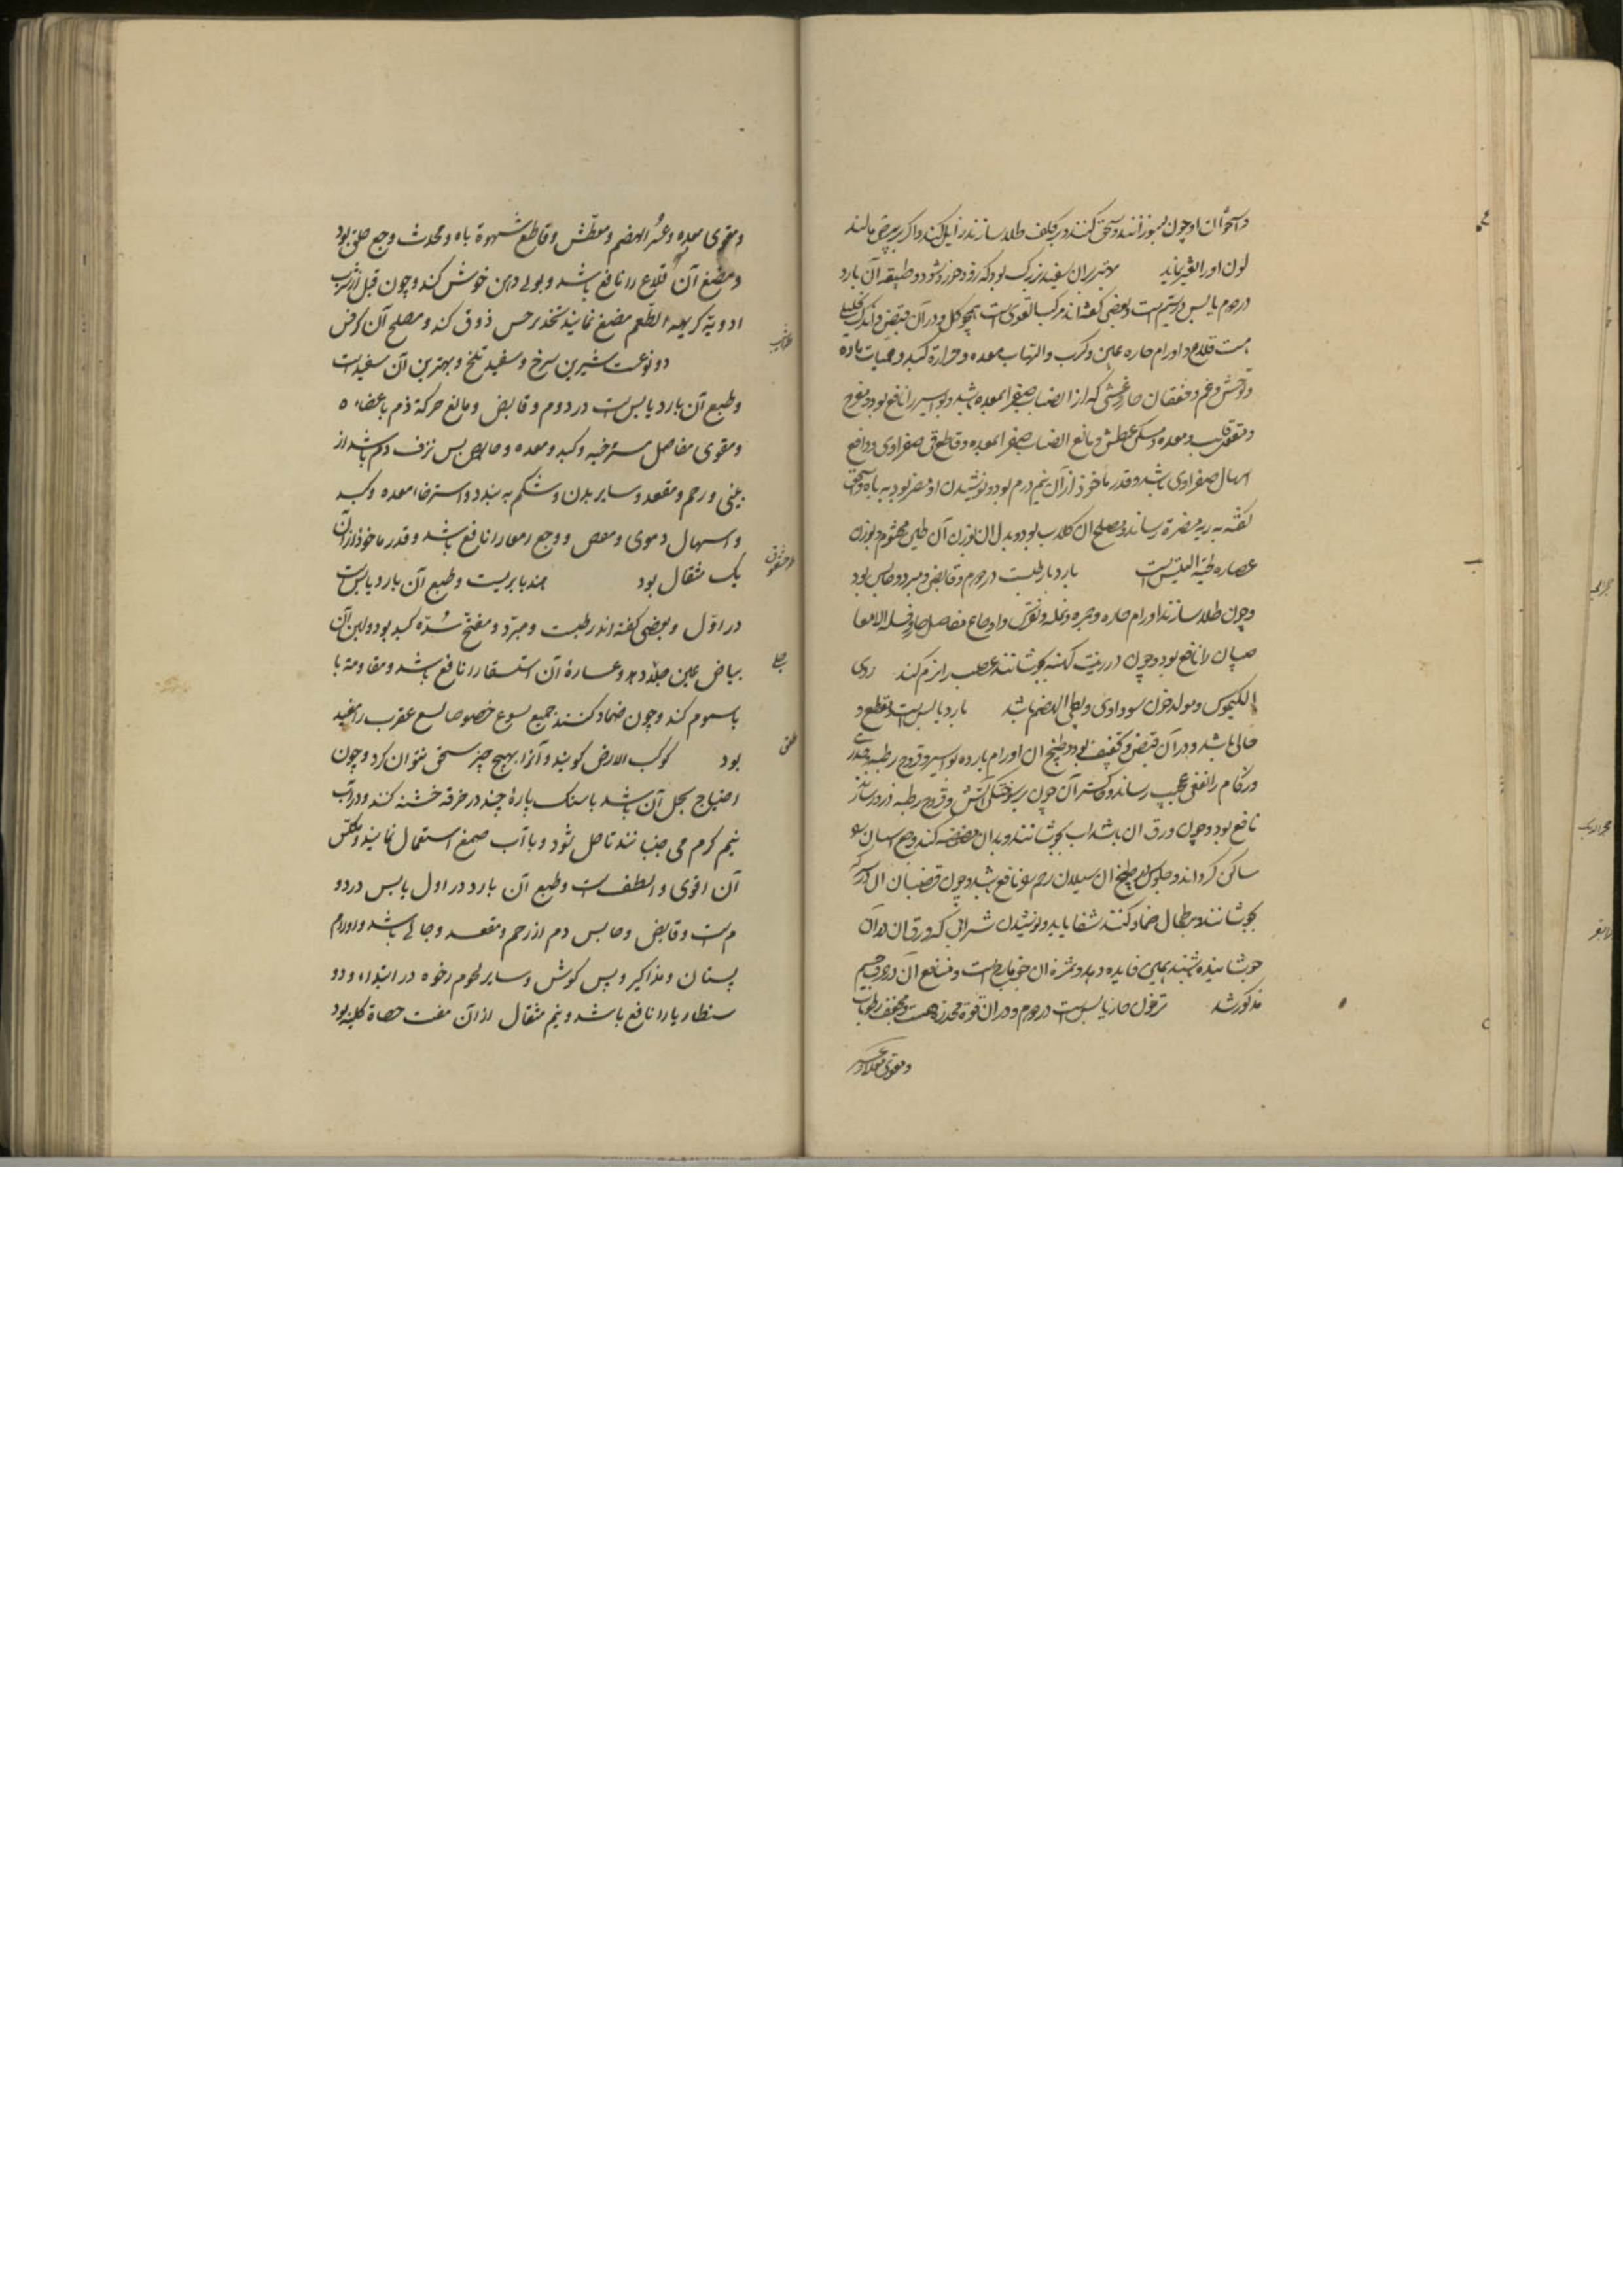 لون او را تغییر نماید بهترین آن سفید بزرگ بود که زود خورد شود و طبیعة آن بارد
در دوم یابس در سیم است و بعضی گفته‌اند مرکب القوی است همچو گل و در آن قبض و اندک
قلاع و اورام حاره عین و کرب و التهاب معده و حرارة کبد و حمیات حاده
و توحش و غم و خفقان حار و غشی که از انصباب صفرا بمعده باشد و بواسیر را نافع بود و مفرح
و مقوی قلب و معده و مسکن عطش و مانع انصباب صفرا بمعده و قاطع قی صفراوی و دافع
اسهال صفراوی باشد و قدر ماخوذ از آن نیم درم بود و نوشیدن او مضر بود به باه
به ریه مضرة رساند و مصلح آن گلاب بود و بدل آن بوزن آن طین مختوم و بوزن
عصاره لحیة التیس است بارد یا رطبست در دوم و قابض و مبرد و حابس بود
و چون طلا سازند اورام حاره و حمره و نمله و نقرس و اوجاع مفاصل حار و
صبیان را نافع بود و چون در زیت کهنه بجوشانند عصب را نرم کند ردی
الکیموس و مولد خون سوداوی و بطی الهضم باشد بارد یابس است و مقطع و
جالی باشد و در آن قبض و تجفیف بود و طبیخ آن اورام بارده و بواسیر و قروح رطبه
و زکام را نفعی عجیب رساند و خاکستر آن چون بر سوختگی آتش و قروح رطبه ذرور سازند
نافع بود و چون ورق آن باشراب بجوشانند و بدان مضمضه کنند وجع اسنان را
ساکن گرداند و جلوس در طبیخ آن سیلان رحم را نافع باشد و چون قضبان آن در سرکه
بجوشانند و بر طحال ضماد کنند شفا یابد و نوشیدن شرابی که ورق آن در آن
جوشانیده باشند همین فایده دهد و ثمرة آن است و منافع آن در حرف جیم
مذکور شد حار یابس است در دوم و در آن قوة مخدره هست و مجفف رطوبات
و مقوی معده و عسر
و مقوی معده و عسر الهضم و معطش و قاطع شهوة باه و محدث وجع حلق بود
و مضغ آن قلاع را نافع باشد و بوی دهن خوش کند و چون قبل از شرب
ادویة کریهه الطعم مضغ نمایند تخدیر حس ذوق کند و مصلح آن کرفس
دو نوعست شیرین سرخ و سفید تلخ و بهترین آن سفید است
و طبع آن بارد یابس است در دوم و قابض و مانع حرکة دم باعضاء
و مقوی مفاصل مسترخیه و کبد و معده و حابس نزف دم باشد از
بینی و رحم و مقعد و سایر بدن و شکم به بندد و استرخاء معده و کبد
و اسهال دموی و مغص و وجع امعا را نافع باشد و قدر ماخوذ از آن
یک مثقال بود هندبا بریست و طبع آن بارد یابس است
در اول و بعضی گفته‌اند رطبست و مبرد و مفتح سدّه کبد بود و لبن آن
بیاض عین جلا دهد و عصارة آن استسقا را نافع باشد و مقاومة با
با سموم کند و چون ضماد کنند جمیع لسوع خصوصا لسع عقرب را مفید
بود کوکب الارض گویند و آنرا بهیچ چیز سحق نتوان کرد و چون
احتیاج بحل آن باشد با سنگ پارۀ چند در خرقه خشنه کنند و در آب
نیم گرم می جنبانند تا حل شود و با آب صمغ استعمال نمایند و مکلس
آن اقوی و الطف است و طبع آن بارد در اول یابس در دو
م است و قابض و حابس دم از رحم و مقعد و جالی باشد و اورام
پستان و مذاکیر و پس گوش و سایر لحوم رخوه در ابتداء و دو
سنطاریا را نافع باشد و نیم مثقال از آن مفتت حصاة کلیه بود